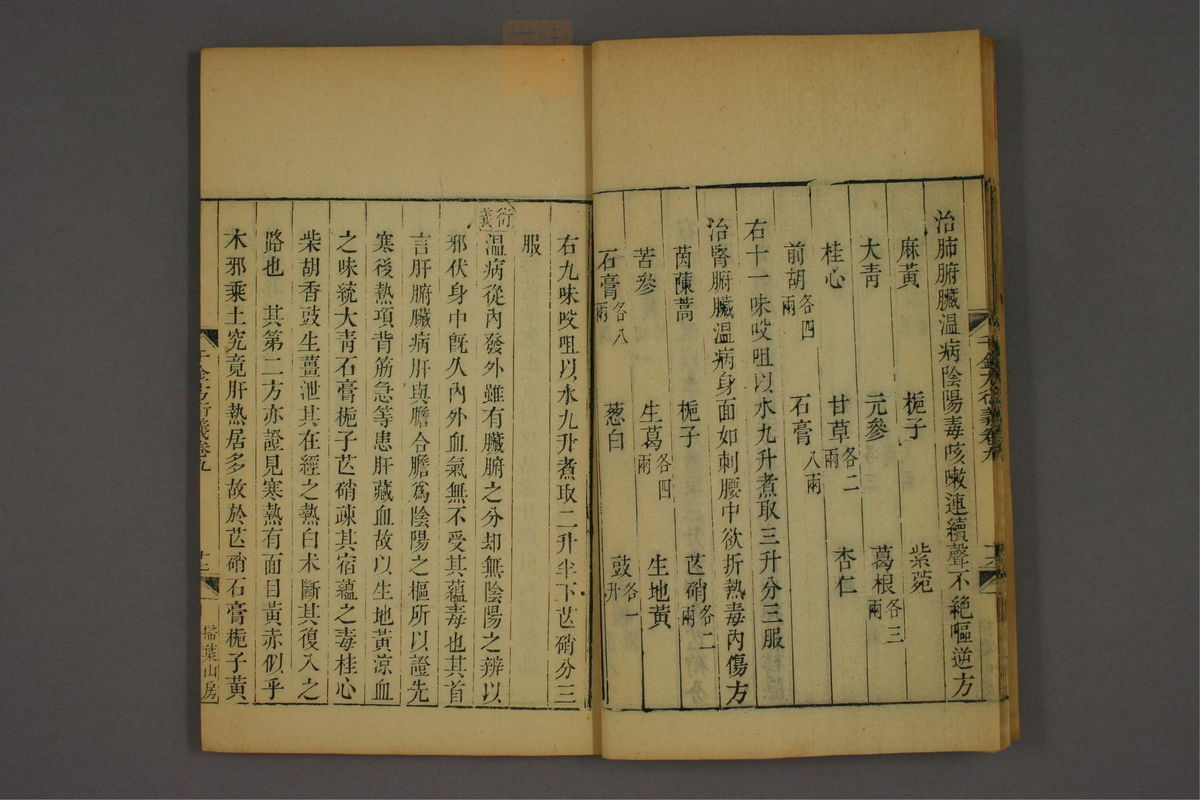 千金方衍義卷九
治肺腑臟温病陰陽毒咳嗽連續聲不絶嘔逆方
麻黃 梔子 紫菀
大青 元參 葛根各三兩
桂心 甘草各二兩 杏仁
前胡各四兩 石膏八兩
右十一味㕮咀以水九升煮取三升分三服
治腎腑臟温病身面如刺腰中欲折熱毒内傷方
茵蔯蒿 梔子 芒硝各二兩
苦參 生葛各四兩 生地黄
石膏各八兩 葱白 豉各一升
右九味㕮咀以水九升煮取二升半下芒硝分三
服
衍義
温病從内發外雖有臟腑之分却無陰陽之辨以
邪伏身中旣久内外血氣無不受其藴毒也其首
言肝腑臟病肝與膽合膽爲陰陽之樞所以證先
寒後熱項背筋急等患肝藏血故以生地黃涼血
之味統大青石膏梔子芒硝疎其宿藴之毒桂心
柴胡香豉生薑泄其在經之熱白术斷其復入之
路也 其第二方亦證見寒熱有面目黃赤似乎
木邪乘土究竟肝熱居多故於芒硝石膏梔子黃
千金方衍義卷九
掃葉山房